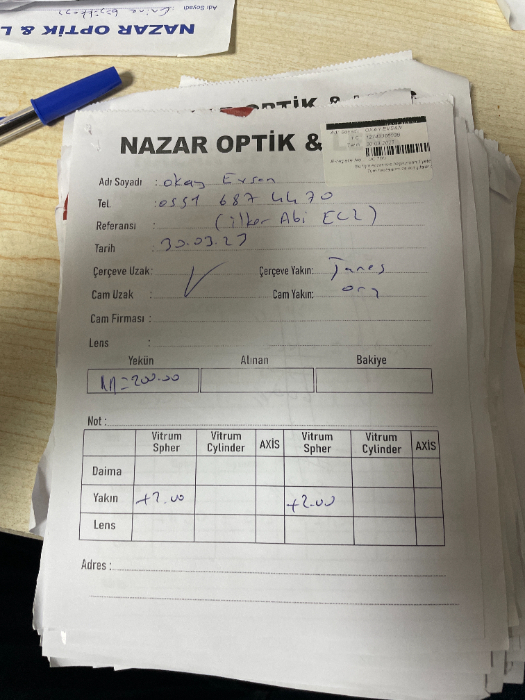 Adı Soyadı
NAZAR OPTİK & L
NAZAR OPTİK &
Adı Soyadı : Okay Ersan
Tel. : 0551 687 4470
Referansı : (ilker Abi ECZ)
Tarih : 30.03.23
Çerçeve Uzak: Çerçeve Yakın:
Cam Uzak : Cam Yakın: org
Cam Firması :
Lens :
Yekün Alınan Bakiye
=200.00
Not :
Vitrum Spher Vitrum Cylinder AXİS Vitrum Spher Vitrum Cylinder AXİS
Daima
Yakın +2.00 +2.00
Lens
Adres :